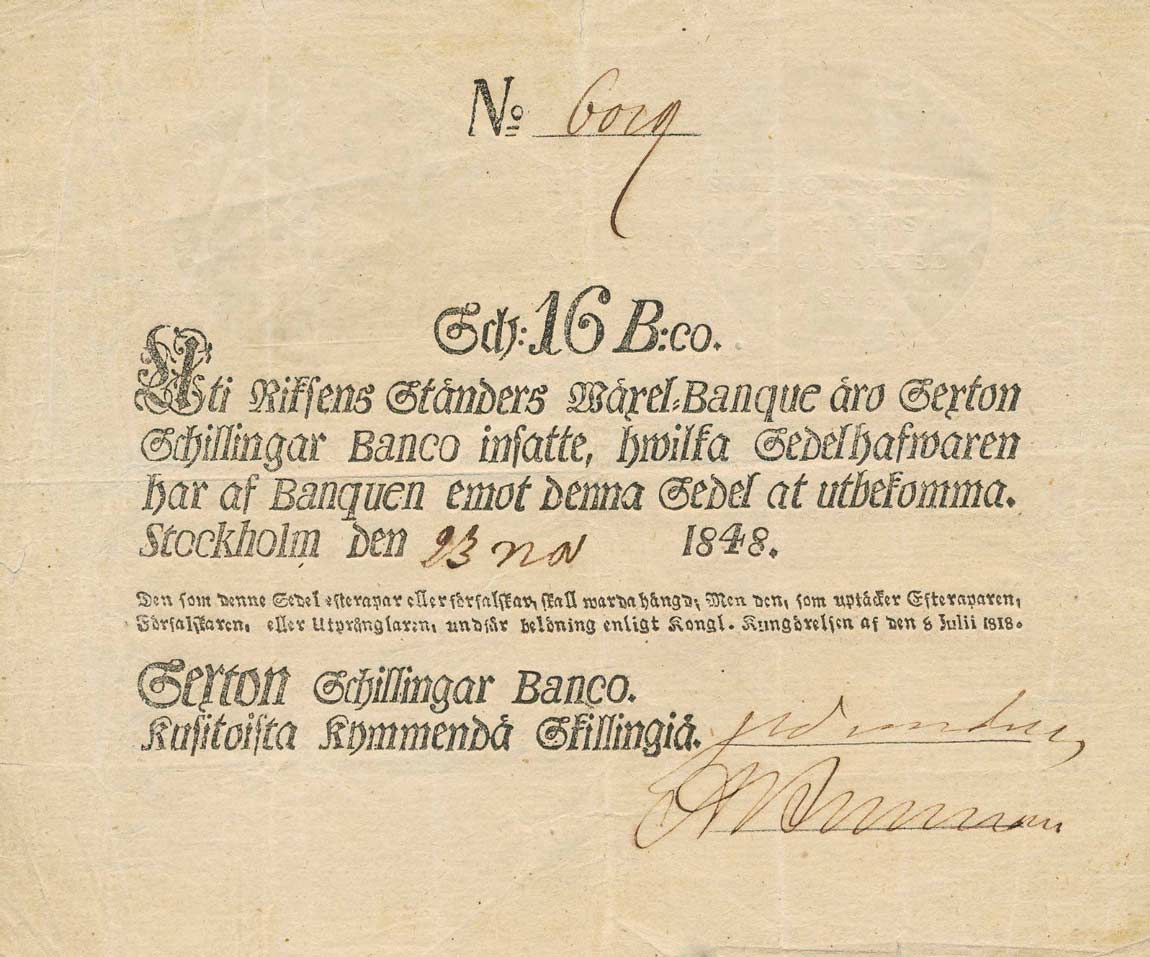 No 6019
Sch: 16 B:co.
Uti Riksens Ständers Wäxel-Banque äro Sexton
Schillingar Banco insatte, hwilka Sedelhafwaren
har af Banquen emot denna Sedel at utbekomma.
Stockholm den 23 nov 1848.
Den som denne Sedel efterapar eller förfalskar, skall warda hängd; Men den, som uptäcker Efteraparen,
Förfalskaren, eller Utprånglaren, undfår belöning enligt Kongl. Kungörelsen af den 8 Julii 1818.
Sexton Schillingar Banco.
Kusitoista Kymmendä Skillingiä.